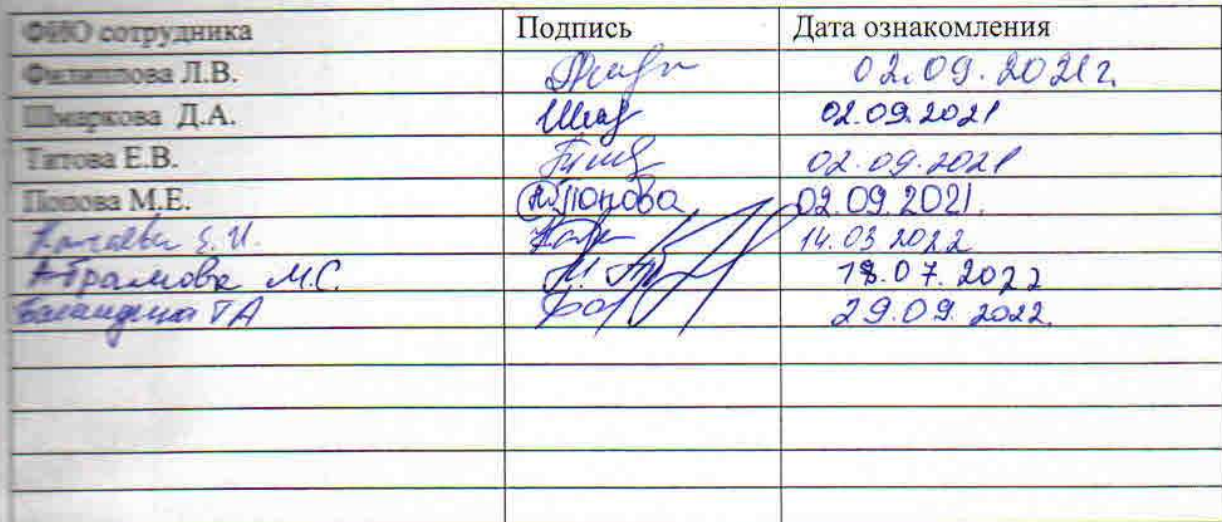 ФИО сотрудника Подпись Дата ознакомления
Филиппова Л.В. 02.09.2021г.
Шмаркова Д.А. 02.09.2021
Титова Е.В. 02.09.2021
Попова М.Е. Попова 02.09.2021.
Е.И. 14.03.2022
Абрамова М.С. 18.07.2022
Баландина ТА 29.09.2022.